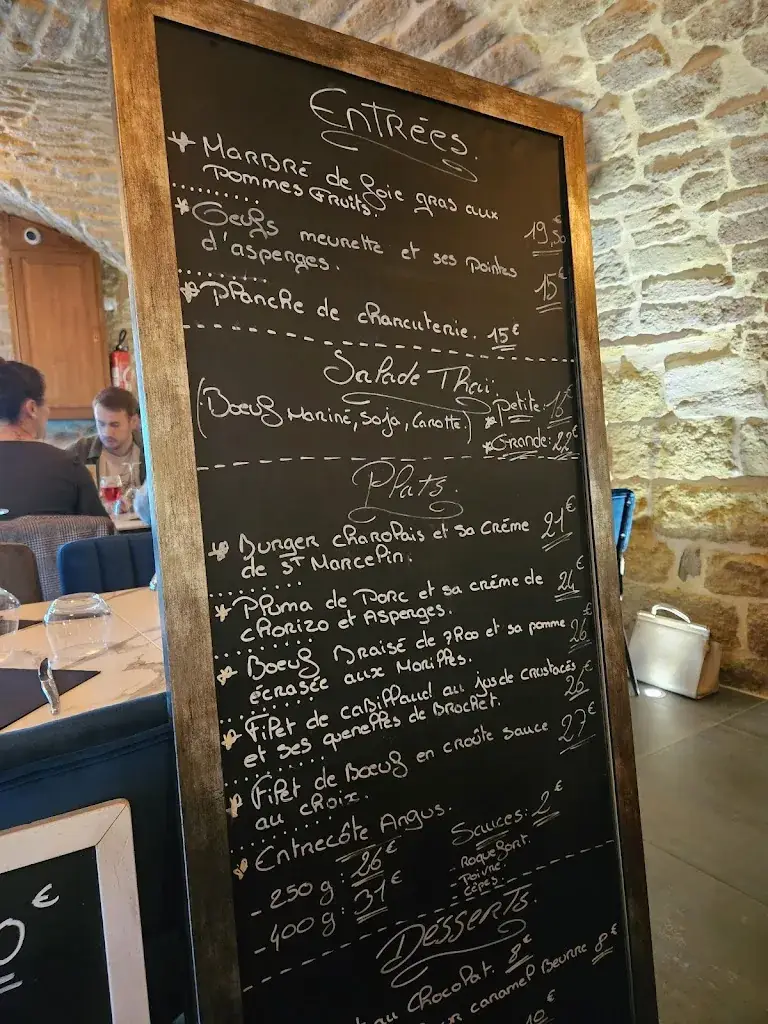 Entrées.
* Marbré de foie gras aux
pommes fruits. 19,50€
* Oeufs meurette et ses pointes
d'asperges. 15€
* Planche de charcuterie. 15€
Salade Thaï.
(Boeuf Mariné, Soja, Carotte.) * Petite:
* Grande: 22€
Plats.
* Burger charolais et sa crème
de St Marcellin. 21€
* Pluma de Porc et sa crème de
chorizo et Asperges. 24€
* Boeuf Braisé de 7h00 et sa pomme
écrasée aux Morilles. 26€
* Filet de cabillaud au jus de crustacés
et ses quenelles de Brochet. 26€
* Filet de Boeuf en croûte sauce
au choix. 27€
* Entrecôte Angus.
- 250 g: 26€
- 400 g: 31€
Sauces: 2€
- Roquefort.
- Poivre.
- Cèpes.
Desserts.
au chocolat. 8€
caramel Beurre 8€
10€
0€